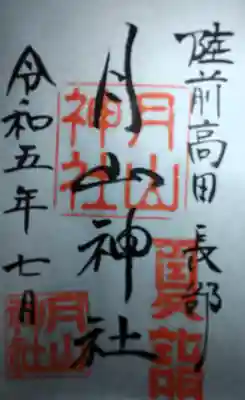 陸前高田 長部
月山神社
令和五年 七月
月山神社
月山神社